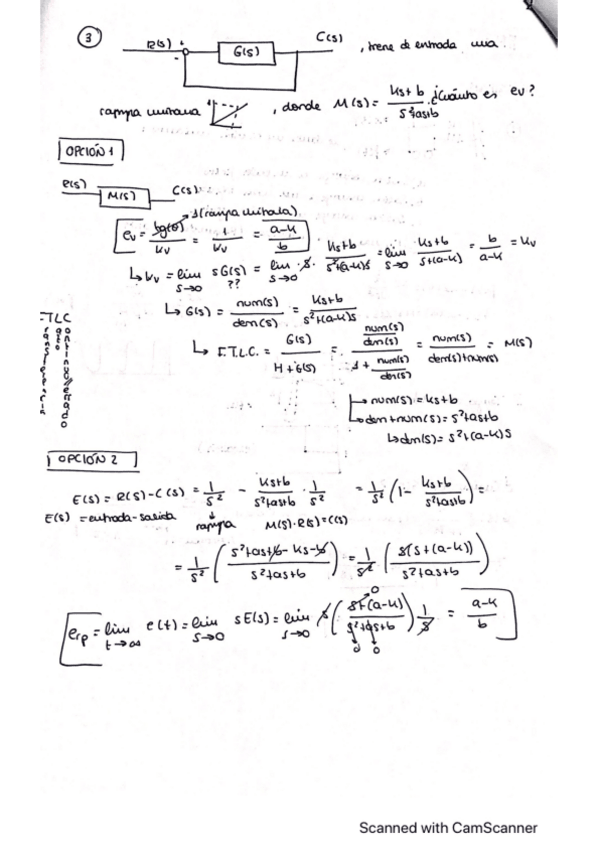 3
R(s) + - G(s) C(s) , tiene de entrada una
rampa unitaria 1 , donde M(s) = ks+b / s²+as+b ¿Cuánto es ev?
OPCIÓN 1
R(s) M(s) C(s)
1 (rampa unitaria)
ev = / kv = 1 / kv = a-k / b
↳ kv = lim s→0 sG(s) = lim s→0 s · ks+b / s²+(a-k)s = lim s→0 ks+b / s+(a-k) = b / a-k = kv
??
↳ G(s) = num(s) / den(s) = ks+b / s²+(a-k)s
↳ F.T.L.C. = G(s) / H+G(s) = num(s)/den(s) / 1 + num(s)/den(s) = num(s) / den(s)+num(s) = M(s)
FTLC
num(s) = ks+b
den+num(s) = s²+as+b
↳ den(s) = s²+(a-k)s
OPCIÓN 2
E(s) = R(s) - C(s) = 1/s² - ks+b / s²+as+b · 1/s² = 1/s² (1 - ks+b / s²+as+b) =
E(s) = entrada-salida rampa M(s)·R(s)=C(s)
= 1/s² (s²+as+b-ks-b / s²+as+b) = 1/s² (s(s+(a-k)) / s²+as+b)
erp = lim t→∞ e(t) = lim s→0 sE(s) = lim s→0 s (s+(a-k) / s²+as+b) 1/s = a-k / b
0
0 0
Scanned with CamScanner